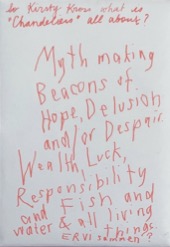 So Kirsty Kross what is
"Chandeliers" all about?
Myth making
Beacons of
Hope, Delusion
and/or Despair.
Wealth, Luck,
Responsibility
and Fish and
water & all living
things